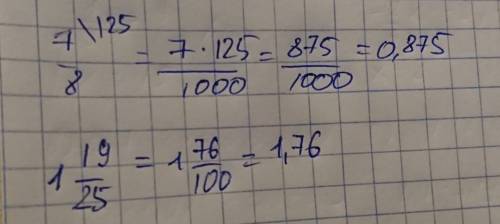 7\125/8 = 7·125/1000 = 875/1000 = 0,875
1 19/25 = 1 76/100 = 1,76